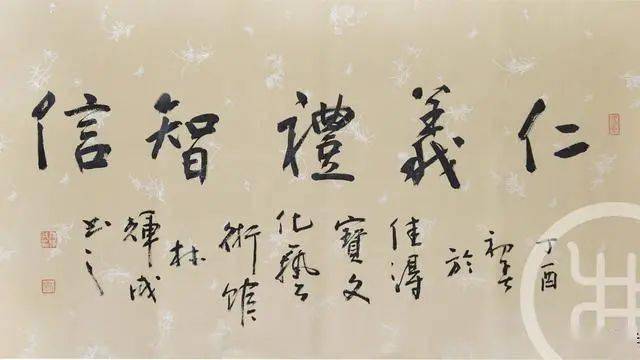 仁義禮智信
丁酉
初
於
佳得
寶文
化藝
術館
林
輝成
书之